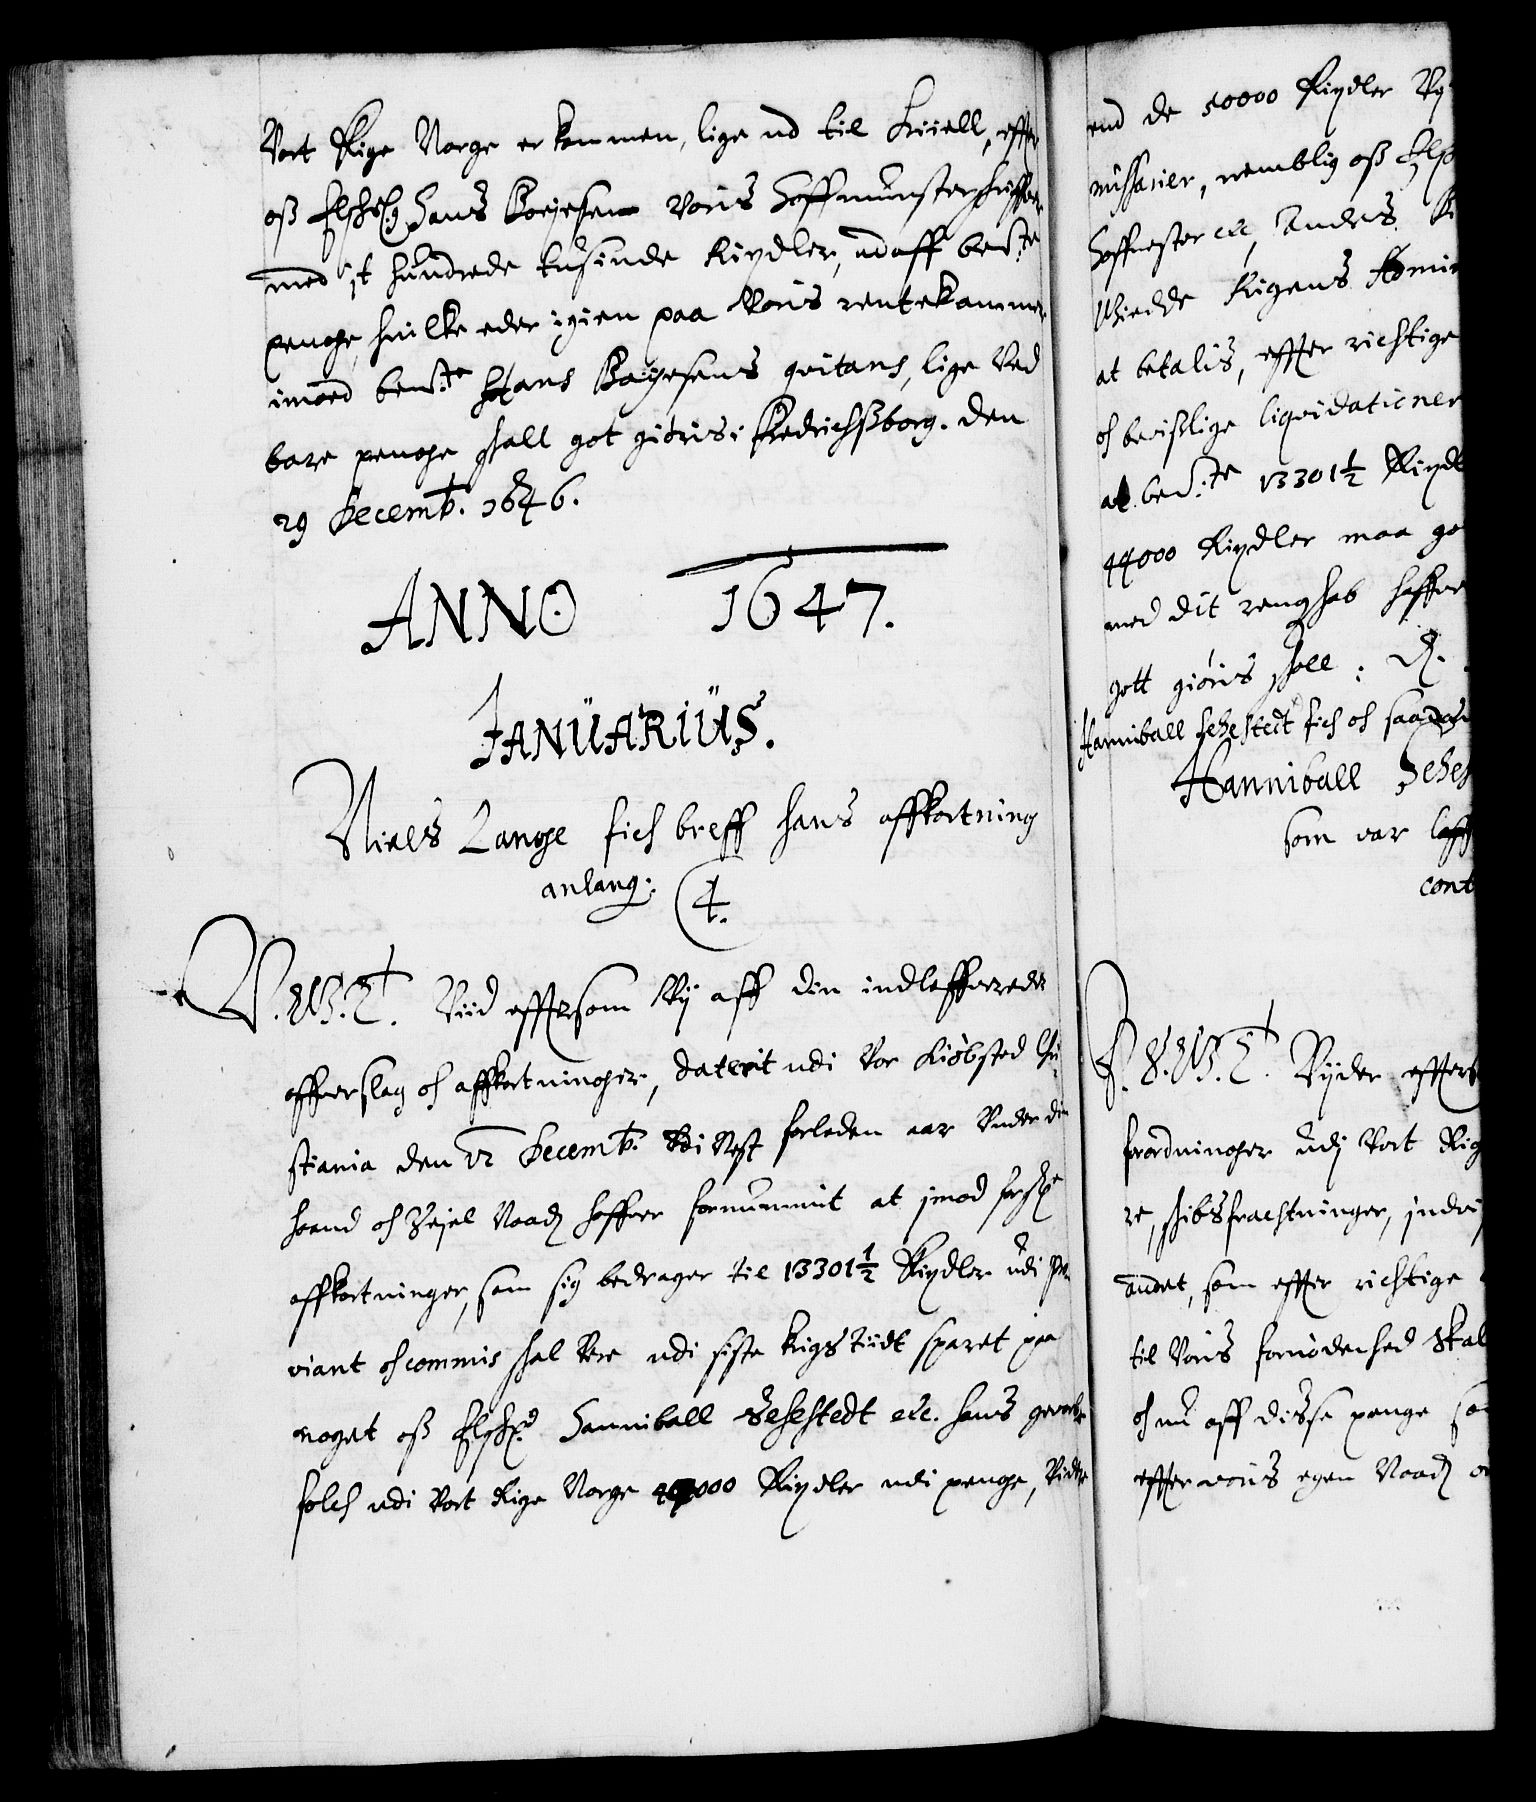 Vort Rige Norge er kommen, lige ud til Kiiell, effter
oß Elsklig Hans Boyesen voris Hoffmunsterschriffver
med it hundrede tusinde Rixdler, udaff bem.te
penge, huilke eder igien paa Voris rentekammer
imoed bem.te Hans Boyesens qvitans, lige Ved
bare penge skall got giöris: Fredrichsborg. den
29 Decemb. 1646.
ANNO 1647.
JANUARIUS.
Niels Lange fich breff hans affkortning
anlang: 4.
V. G. T. Viid effttersom Wij aff din indlefferede
offverslag och affkortninger, daterit udi Vor Kiöbsted Chri
stiania den 22 Decemb. udi Nest forleden aar Under din
haand och Zejel Naadl haffver fornummit at jmod forsk.e
affkortninger, som sig bedrager til 13301½ Rixdler udi pro
viant och commis skal Vere udi siste krigs tiidt sparet paa
noget oß Elskl. Hanniball Sehestedt etc. hans geworbne
folch udi Vort Rige Norge 44000 Rixdler udi penge, Videre
end de 50000 Rixdler Vs
missarier, nemblig oß Elsk
Hoffmester etc, Anders Bi
Thiedde Rigens Admir
at betalis, effter richtige
och beviislige liqvidationer
at bem.te 13301½ Rixdl
44000 Rixdler maa go
med dit rengskab haffver
gott giöris skall: D.
Hanniball Sehestedt fich och saadan
Hanniball Sehes
som var loff
cont
F. S. G. T. Vijder effters
forordninger udj Vort Rig
re, skibsfrachtninger, jndrij
andet, som effter richtige
til Voris fornödenhed skal
och nu aff disse penge so
effter voris egen Naadl